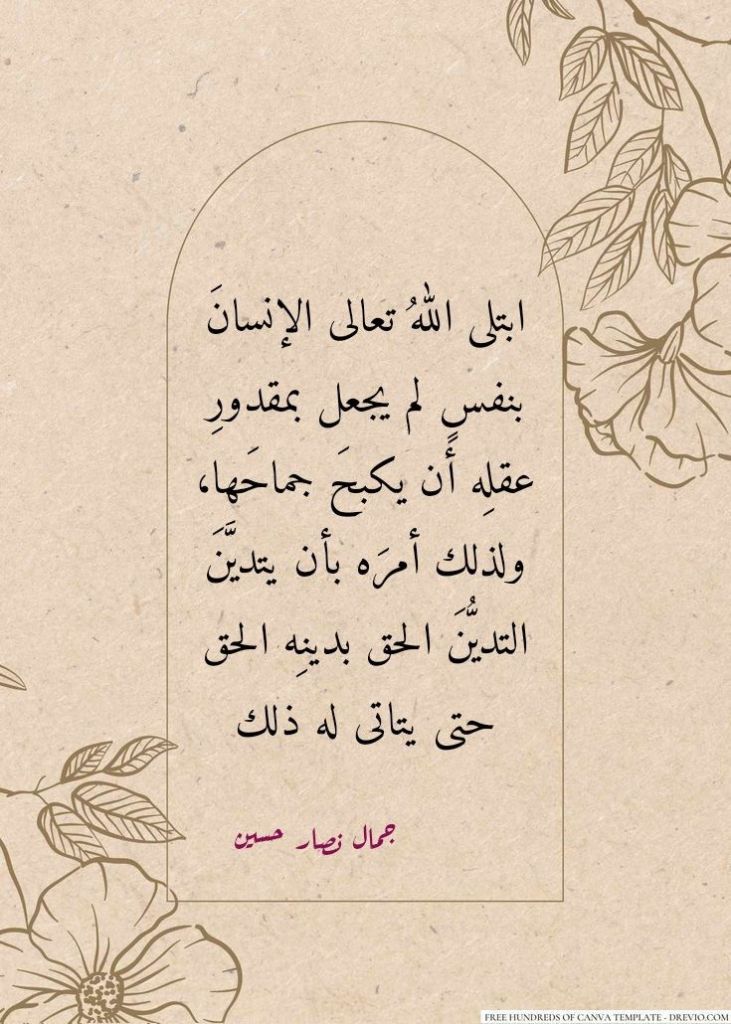 ابتلى اللهُ تعالى الإنسانَ
بنفسٍ لم يجعل بمقدورِ
عقلِه أن يكبحَ جماحَها،
ولذلك أمرَه بأن يتديَّنَ
التديُّنَ الحق بدينِه الحق
حتى يتاتى له ذلك
جمال نصار حسين
FREE HUNDREDS OF CANVA TEMPLATE - DREVIO.COM